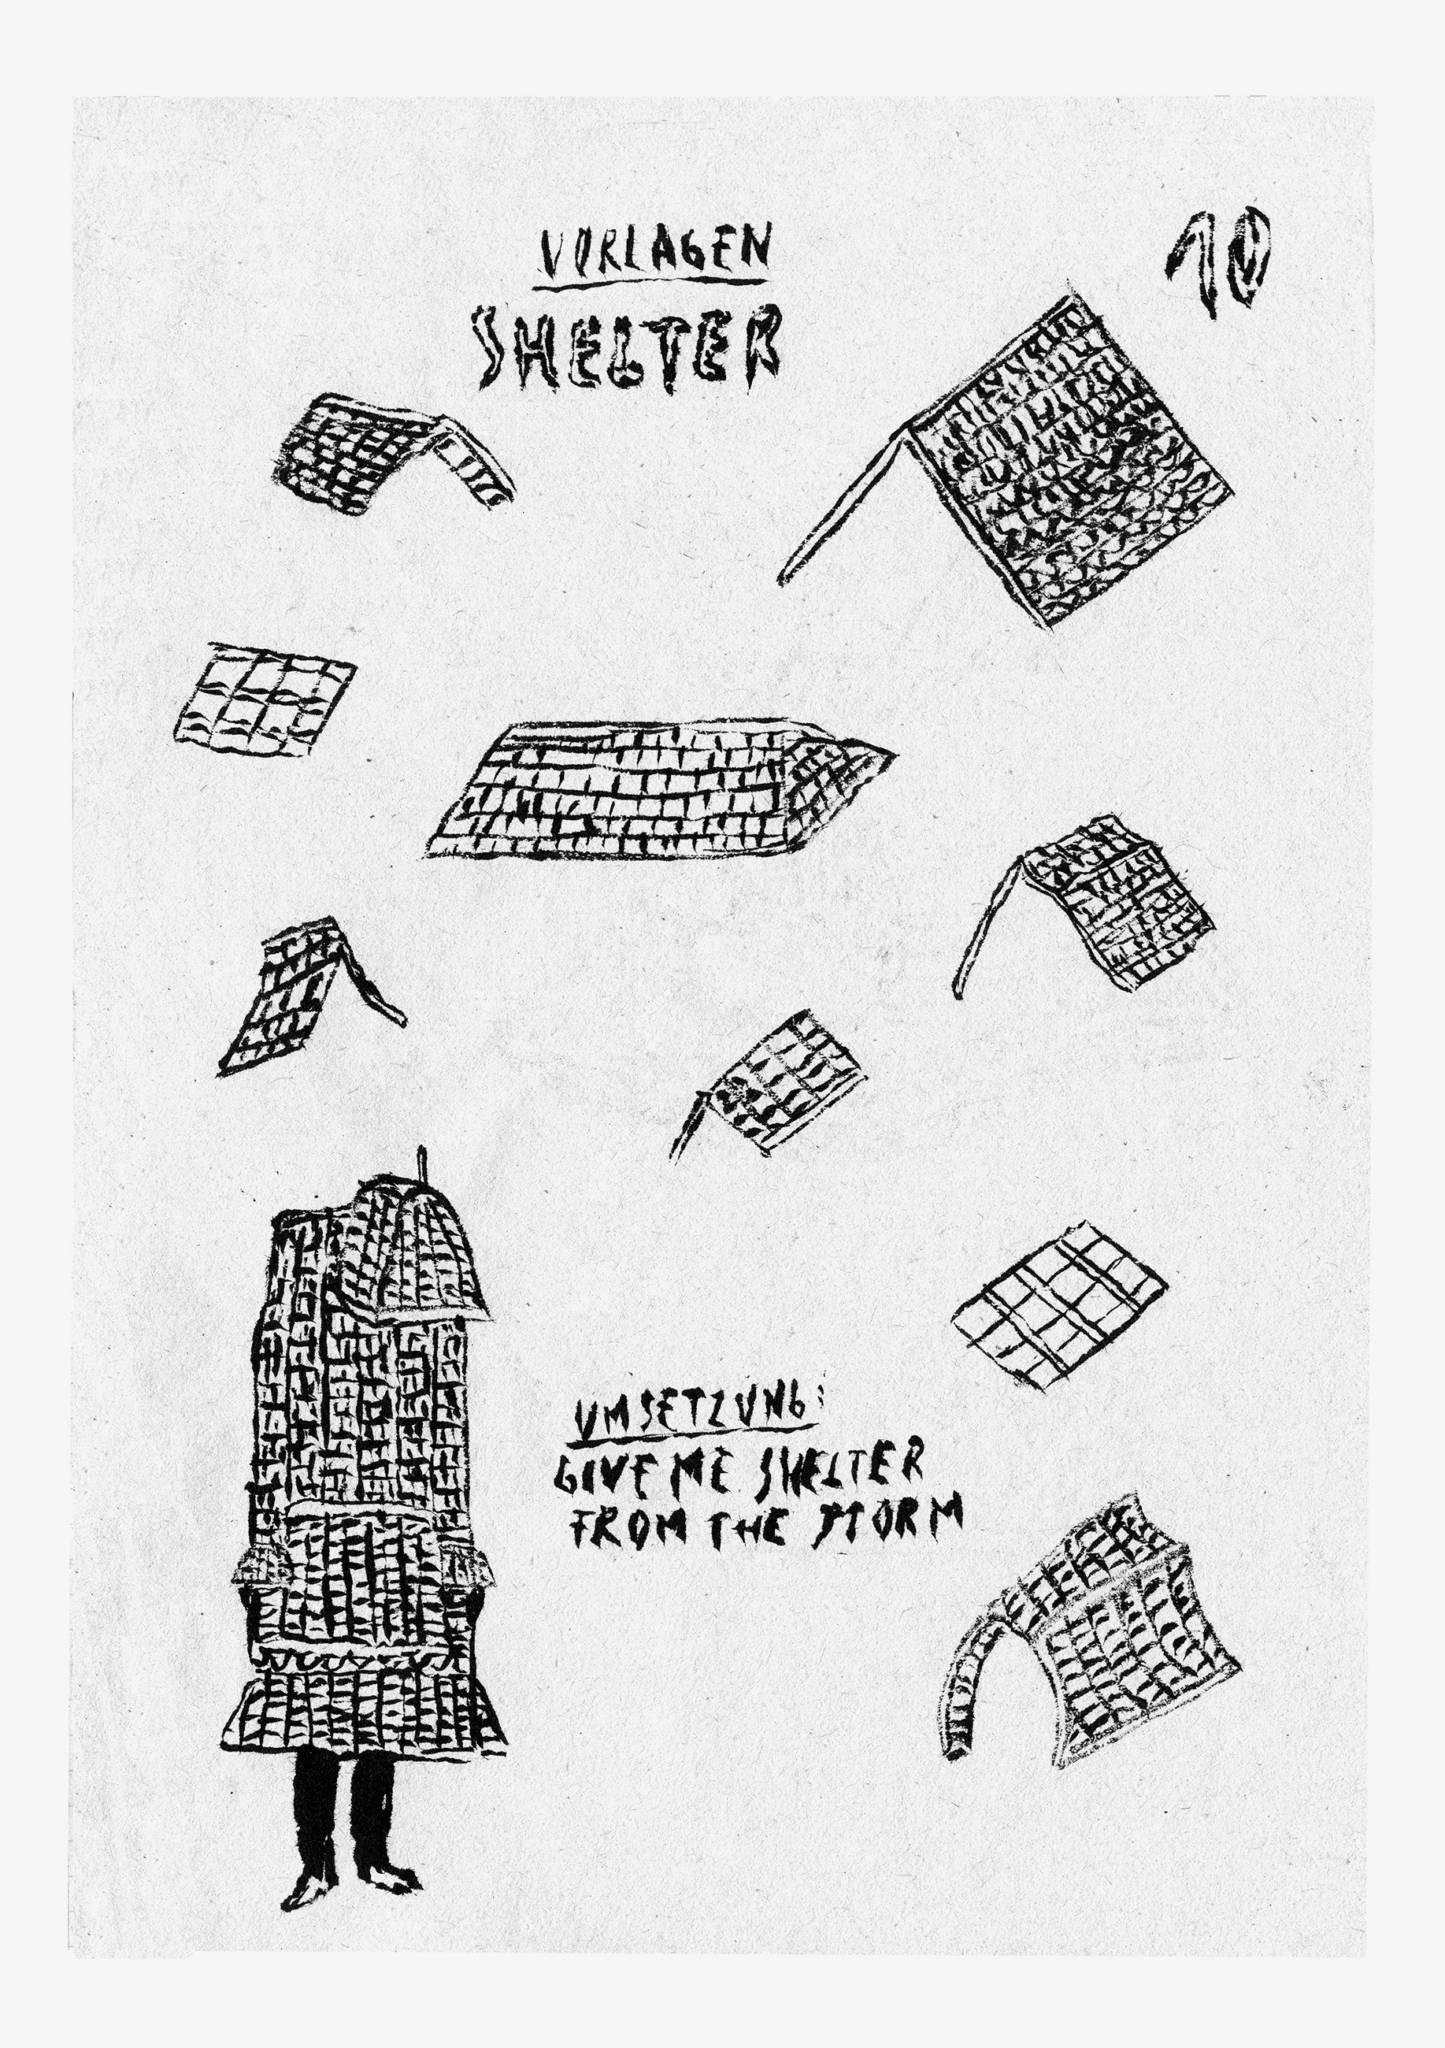 VORLAGEN
SHELTER
10
UMSETZUNG:
GIVE ME SHELTER
FROM THE STORM